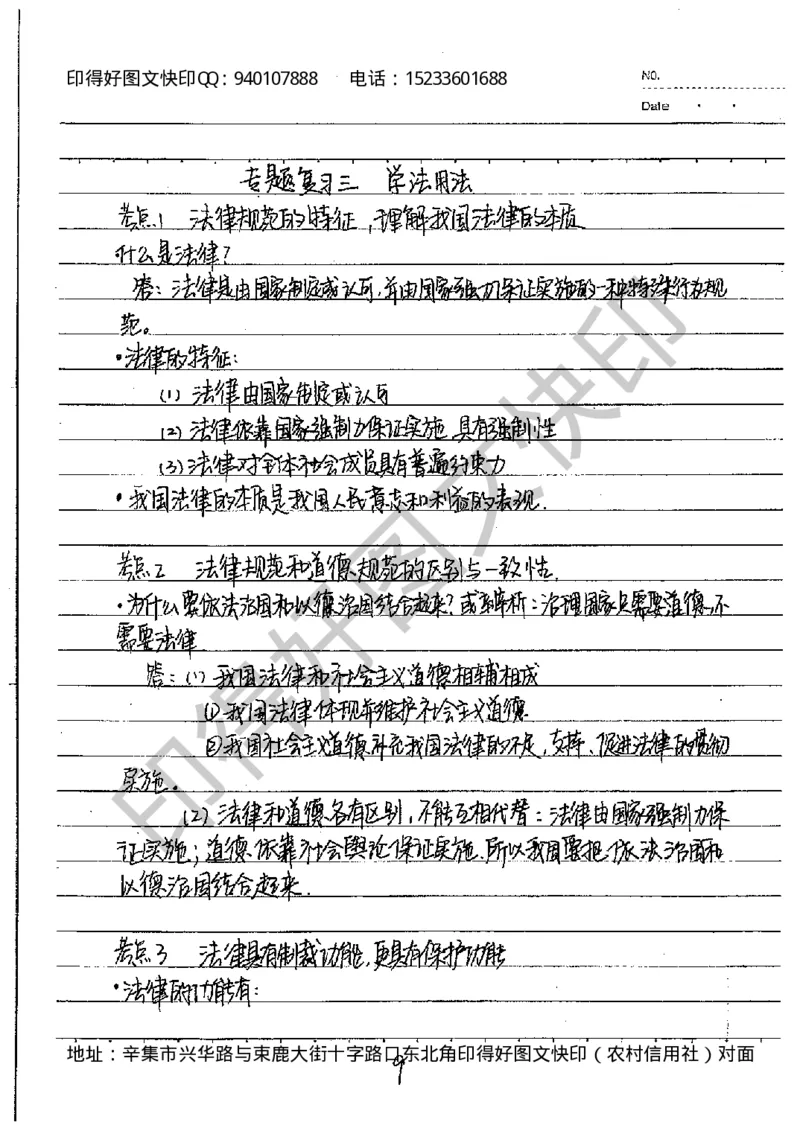 印得好图文快印QQ：940107888 电话：15233601688
NO.
Date
专题复习三 学法用法
考点1 法律规范的特征，理解我国法律的本质
什么是法律？
答：法律是由国家制定或认可，并由国家强力保证实施的一种特殊行为规
范。
·法律的特征：
(1) 法律由国家制定或认可
(2) 法律依靠国家强制力保证实施，具有强制性
(3) 法律对全体社会成员具有普遍约束力
·我国法律的本质是我国人民意志和利益的表现.
考点2 法律规范和道德规范的区别与一致性.
·为什么要依法治国和以德治国结合起来？或辨析：治理国家只需要道德，不
需要法律.
答：(1) 我国法律和社会主义道德相辅相成
①我国法律体现并维护社会主义道德.
②我国社会主义道德补充我国法律的不足，支持、促进法律的贯彻
实施。
(2) 法律和道德各有区别，不能互相代替：法律由国家强制力保
证实施；道德依靠社会舆论保证实施.所以我国要把依法治国和
以德治国结合起来.
考点3 法律具有制裁功能，更具有保护功能
·法律的功能有：
地址：辛集市兴华路与束鹿大街十字路口东北角印得好图文快印（农村信用社）对面
9
印得好图文快印